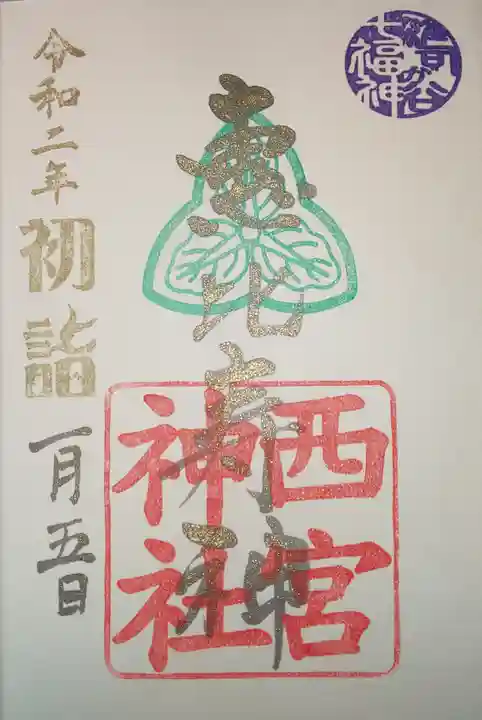 七福神
恵比寿
神社
西宮
神社
令和二年
初詣
一月五日